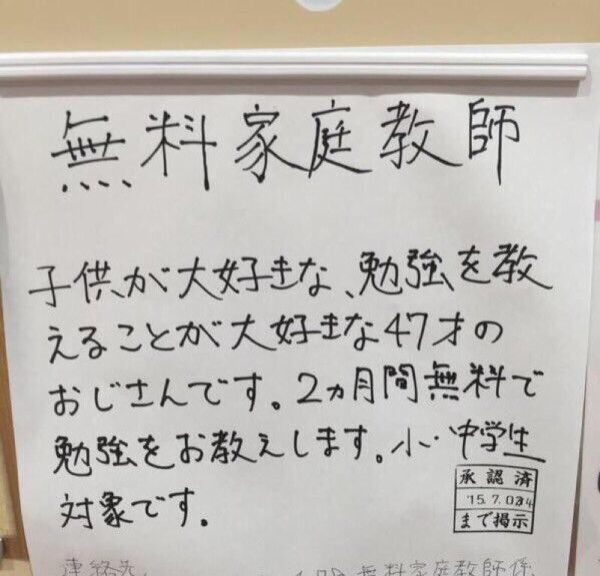 無料家庭教師
子供が大好きな、勉強を教
えることが大好きな47才の
おじさんです。2ヵ月間無料で
勉強をお教えします。小・中学生
対象です。
承認済
'15.7.
まで掲示
連絡先
無料家庭教師係